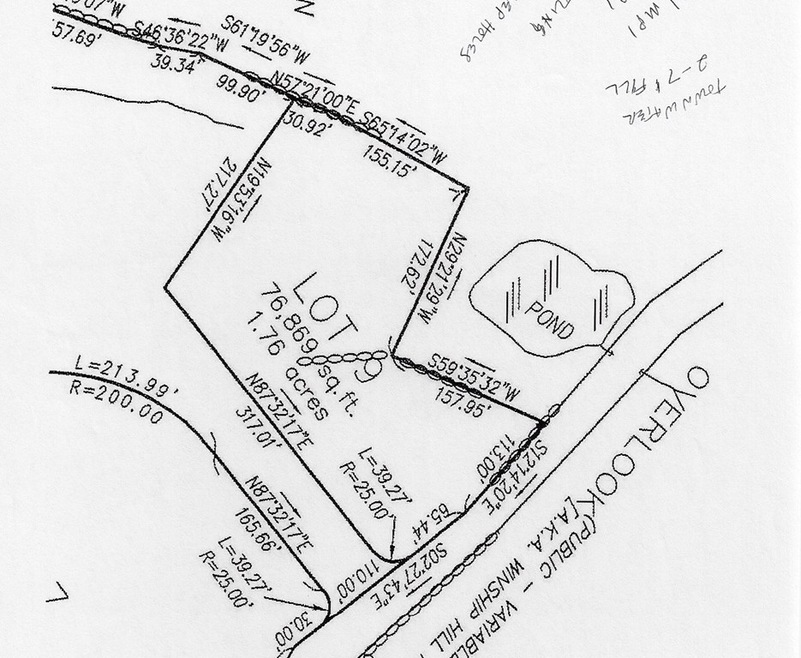 57.69'
S46°36'22"W
39.34'
S61°19'56"W
99.90'
N57°21'00"E
30.92'
S65°14'02"W
155.15'
N
TOWN WATER
2-7' FILL
217.27'
N19°53'16"W
N29°21'29"W
172.62'
POND
LOT 9
76,869 sq.ft.
1.76 acres
S59°35'32"W
157.95'
L=213.99'
R=200.00
N87°32'17"E
317.01'
L=39.27'
R=25.00'
113.00'
S12°14'20"E
65.44'
S02°27'43"E
110.00'
N87°32'17"E
165.66'
L=39.27'
R=25.00'
30.00'
OVERLOOK
(PUBLIC - VARIABLE
[A.K.A. WINSHIP HILL